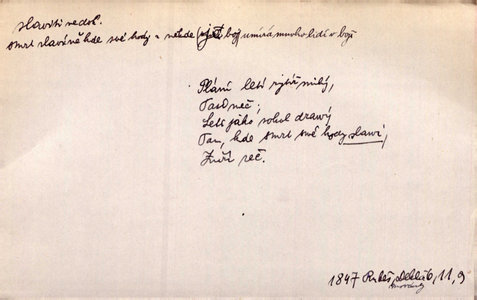 slaviti vedle.
smrt slaví někde své hody = někde boj umírá mnoho lidí v boji
Plání letí rytíř milý,
Tasil meč;
Letí jako sokol dravý
Tam, kde smrt své hody slaví,
Zuří seč.
1847 Rubeš, Deklab, 11, 9